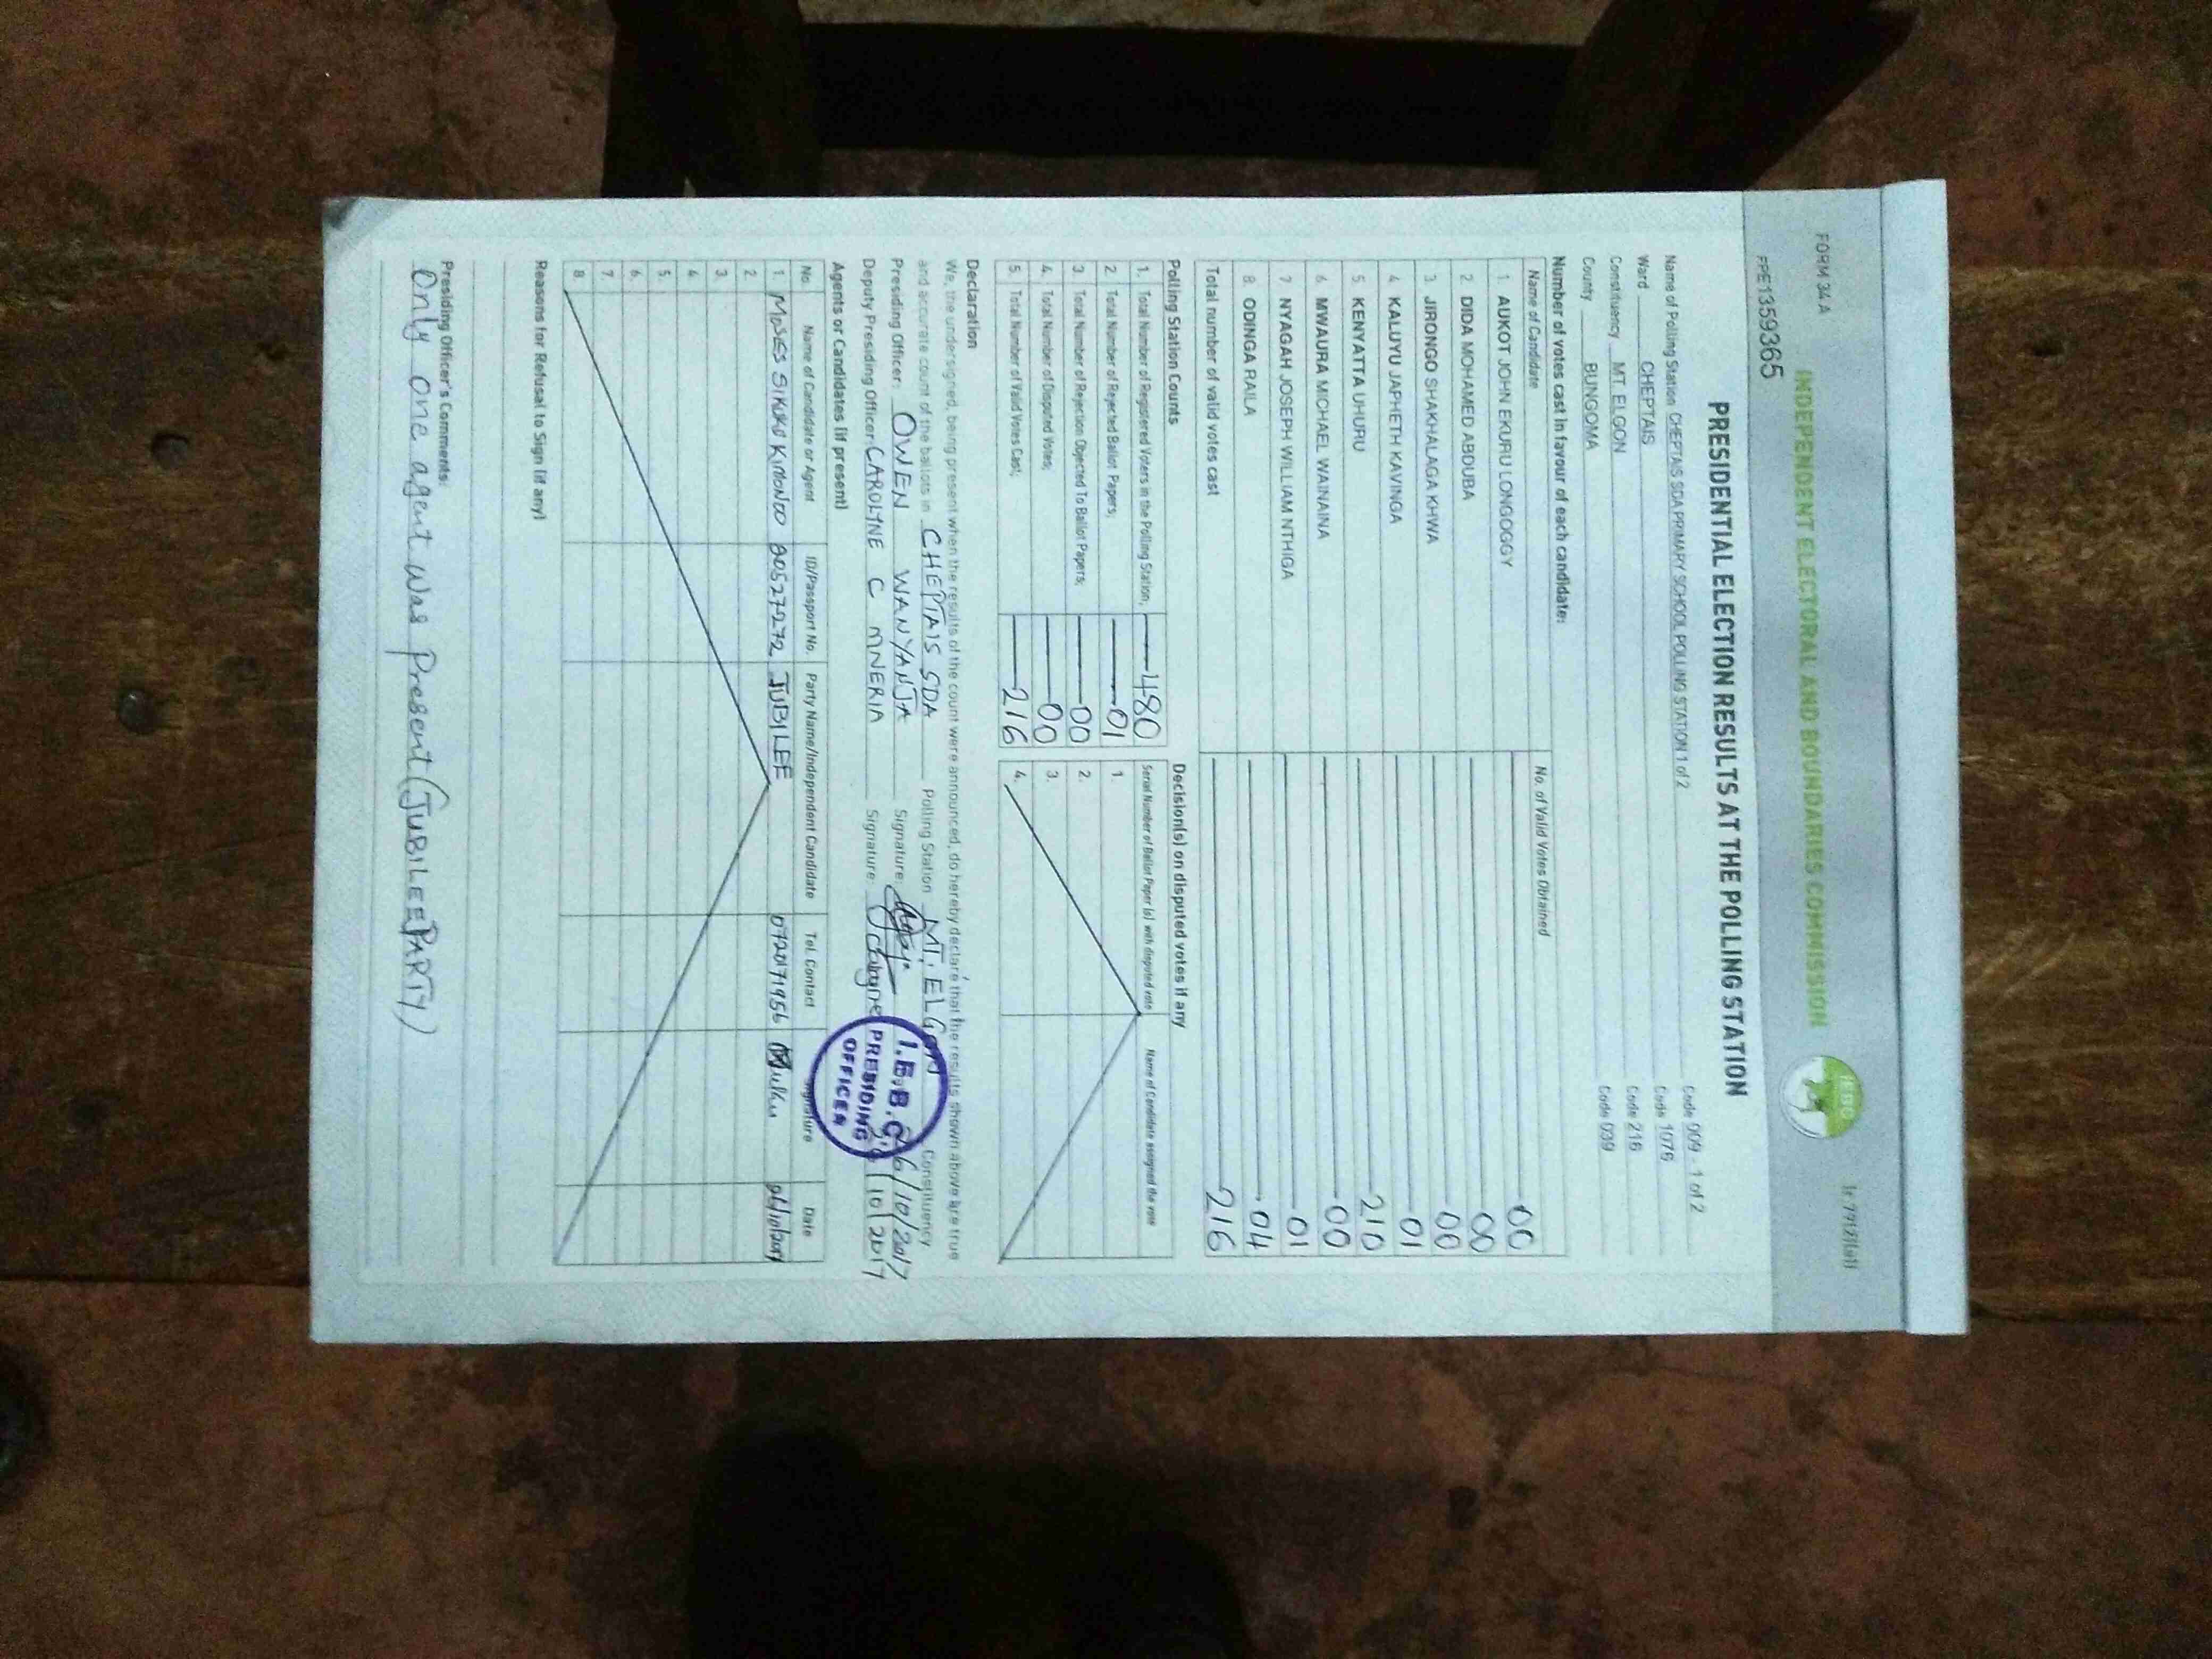 FORM 34 A
INDEPENDENT ELECTORAL AND BOUNDARIES COMMISSION
IEBC
FPE1359365
PRESIDENTIAL ELECTION RESULTS AT THE POLLING STATION
Name of Polling Station CHEPTAIS SDA PRIMARY SCHOOL POLLING STATION 1 of 2 Code 009 - 1 of 2
Ward CHEPTAIS Code 1076
Constituency MT. ELGON Code 216
County BUNGOMA Code 039
Number of votes cast in favour of each candidate:
Name of Candidate No. of Valid Votes Obtained
1. AUKOT JOHN EKURU LONGOGGY 00
2. DIDA MOHAMED ABDUBA 00
3 JIRONGO SHAKHALAGA KHWA 00
4 KALUYU JAPHETH KAVINGA 01
5 KENYATTA UHURU 210
6 MWAURA MICHAEL WAINAINA 00
7 NYAGAH JOSEPH WILLIAM NTHIGA 01
8 ODINGA RAILA 04
Total number of valid votes cast 216
Polling Station Counts
1. Total Number of Registered Voters in the Polling Station; 480
2. Total Number of Rejected Ballot Papers; 01
3. Total Number of Rejection Objected To Ballot Papers; 00
4. Total Number of Disputed Votes; 00
5. Total Number of Valid Votes Cast; 216
Decision(s) on disputed votes if any
Serial Number of Ballot Paper (s) with disputed vote Name of Candidate assigned the vote
1.
2.
3.
4.
Declaration
We, the undersigned, being present when the results of the count were announced, do hereby declare that the results shown above are true
and accurate count of the ballots in CHEPTAIS SDA Polling Station MT. ELGON Constituency
Presiding Officer: OWEN WANYANJA Signature: 26/10/2017
Deputy Presiding Officer: CAROLYNE C MNERIA Signature: 10/2017
I.E.B.C.
PRESIDING
OFFICER
Agents or Candidates (if present)
No Name of Candidate or Agent ID/Passport No. Party Name/Independent Candidate Tel. Contact Signature Date
1 MOSES KIMONDO JUBILEE
2.
3.
4
5.
6.
7.
8.
Reasons for Refusal to Sign (if any)
Presiding Officer's Comments:
Only one agent was Present (JUBILEE PARTY)